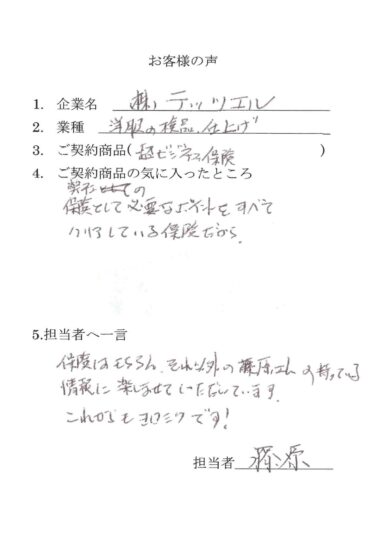 お客様の声
1. 企業名 (株)テッツエル
2. 業種 洋服の検品、仕上げ
3. ご契約商品(超ビジネス保険)
4. ご契約商品の気に入ったところ
弊社の
保険として必要なポイントをすべて
クリアしている保険だから。
5.担当者へ一言
保険はもちろん、それ以外の藤原さんの持っている
情報に楽しませていただいています。
これからもヨロシクです!
担当者 藤原